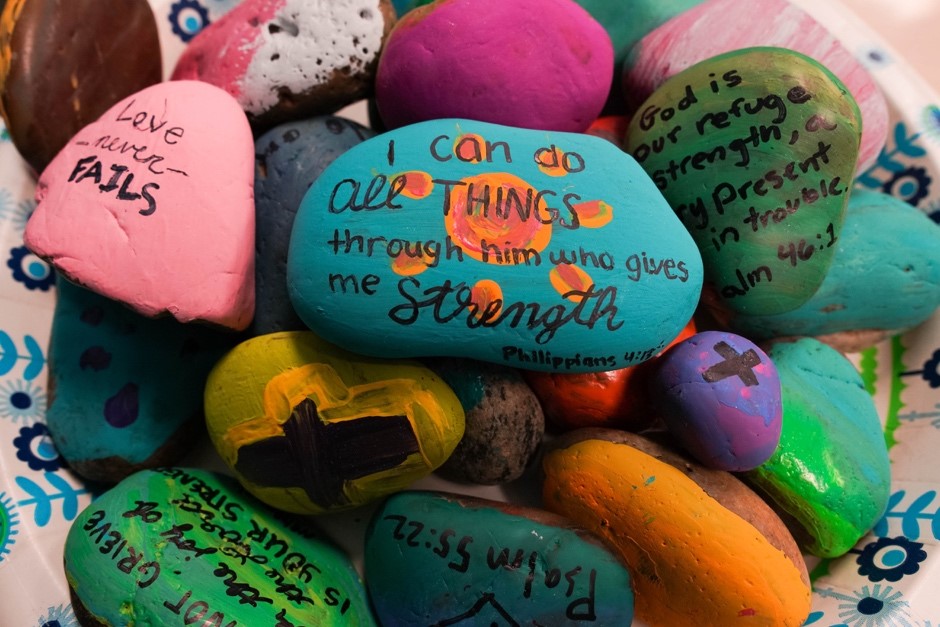 Love
-never-
FAILS
I can do
All THINGS
through him who gives
me Strength
Philippians 4:13
God is
our refuge
strength, a
ry Present
in trouble.
alm 46:1
NOT GRIEVE
the joy of
IS YOUR STREN
Psalm 55:22